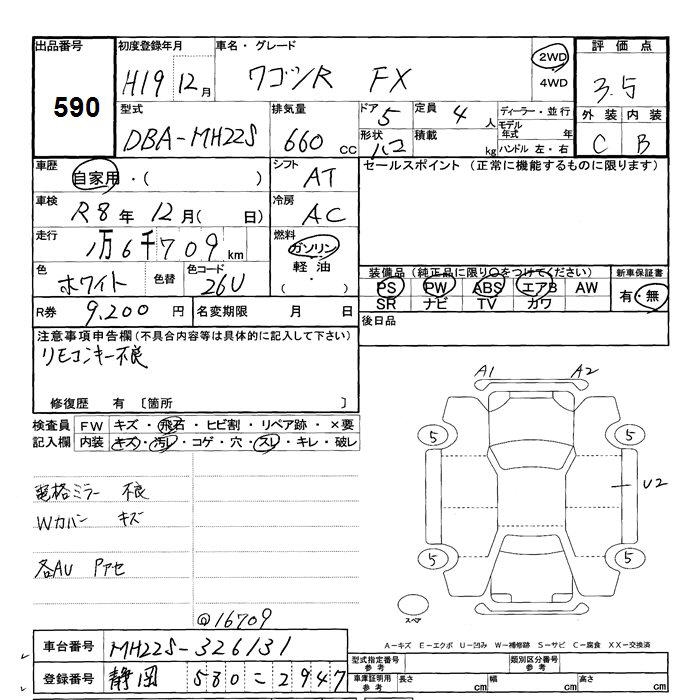 出品番号 初度登録年月 車名・グレード 評価点
590 H19 12月 ワゴンR FX 2WD 4WD 3.5
型式 排気量 ドア 5 定員 4人 ディーラー・並行 外装 内装
DBA-MH22S 660cc 形状 ハコ 積載 kg モデル年式 年 C B
ハンドル 左・右
車歴 自家用・( ) シフト AT セールスポイント (正常に機能するものに限ります)
車検 R8年 12月( 日) 冷房 AC
走行 1万6千709km 燃料 ガソリン
色 ホワイト 色替 色コード 26U 軽油・( )
装備品 (純正品に限り○をつけてください) 新車保証書
PS PW ABS エアB AW 有・無
SR ナビ TV カワ
R券 9,200円 名変期限 月 日 後日品
注意事項申告欄(不具合内容等は具体的に記入して下さい)
リモコンキー不良
修復歴 有 〔箇所 〕
検査員 FW キズ・飛石・ヒビ割・リペア跡・×要
記入欄 内装 キズ・汚レ・コゲ・穴・スレ・キレ・破レ
A1 A2
5 5
電格ミラー 不良 U2
Wカバン キズ
各AU Pアセ 5 5
@16709 スペア
A-キズ E-エクボ U-凹み W-補修跡 S-サビ C-腐食 XX-交換済
車台番号 MH22S-326131 型式指定番号 参考 類別区分番号 参考
登録番号 静岡 580 ニ 2947 車庫証明用 参考 長さ cm 幅 cm 高さ cm